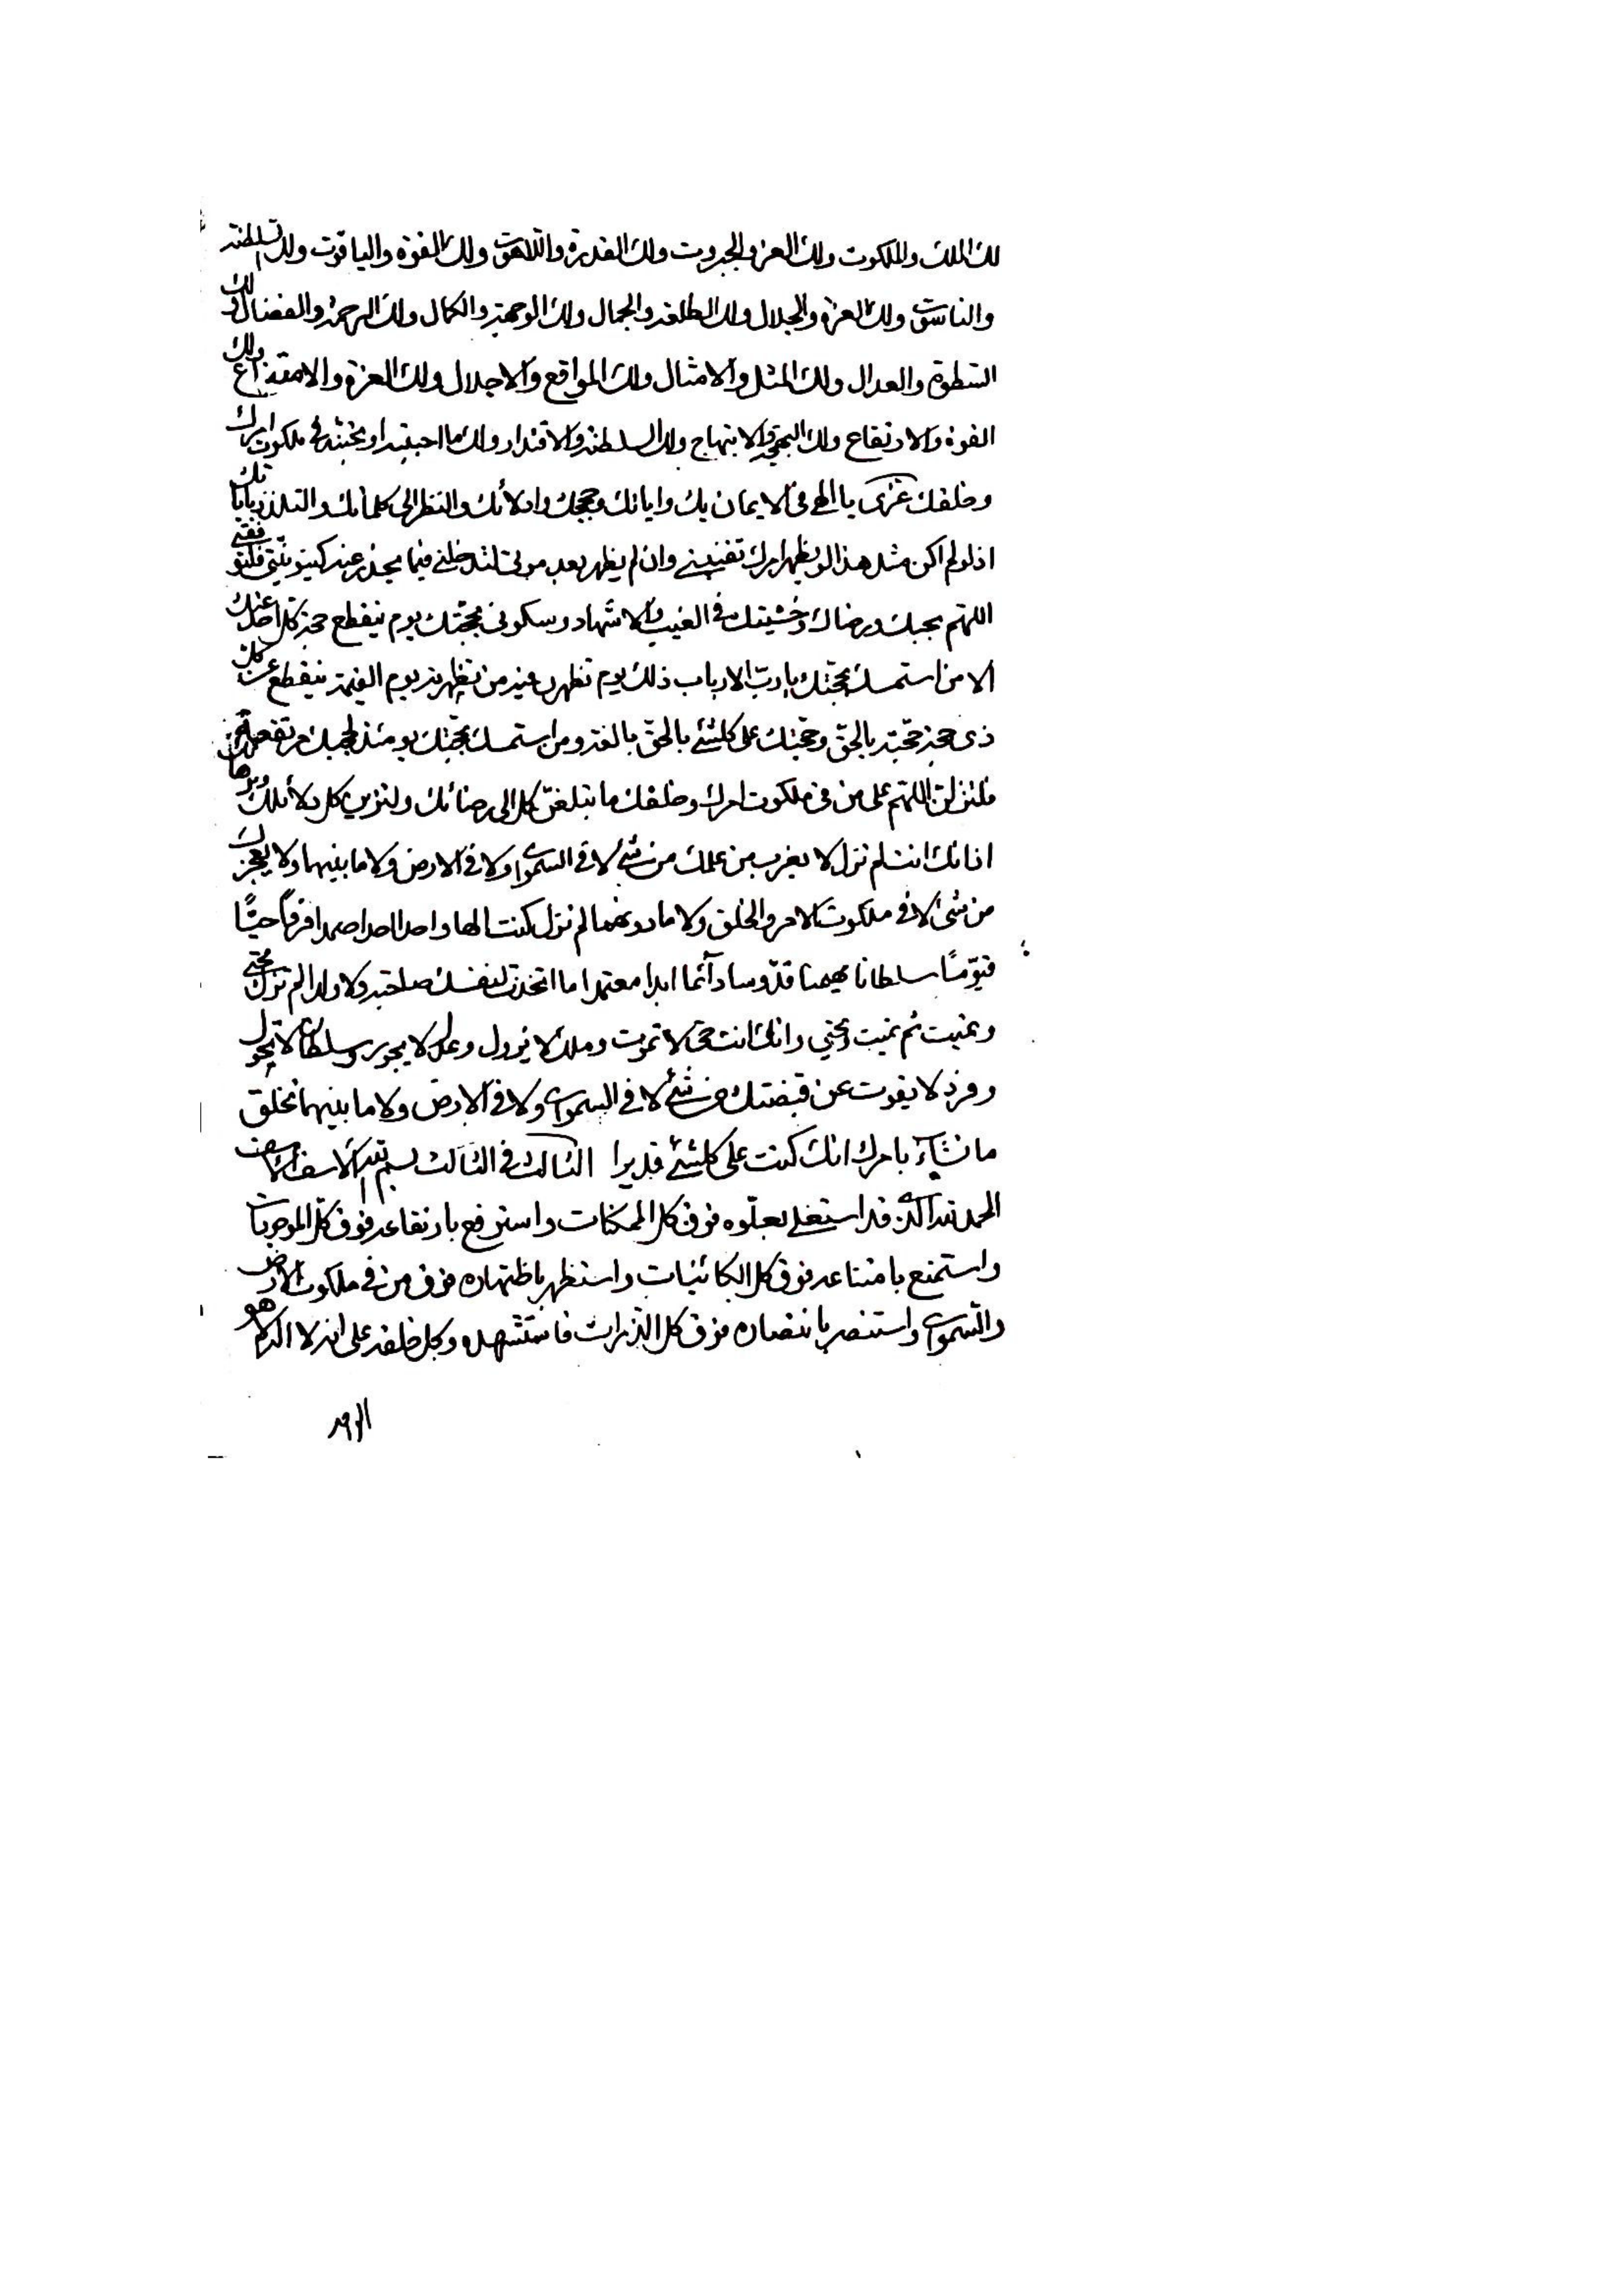 لك الملك والملكوت ولك العز والجبروت ولك القدرة واللاهوت ولك القوة والياقوت ولك السلطنة
والناسوت ولك العزة والجلال ولك الطلعة والجمال ولك الوجهة والكمال ولك الرحمة والفضال ولك
السطوة والعدال ولك المثل والامثال ولك المواقع والاجلال ولك العزة والامتناع ولك
القوة والارتفاع ولك البهجة والابتهاج ولك السلطنة والاقتدار ولك ما احببته او تحبنه في ملكوت امرك
وخلقك عزى يا الهى فى الايمان بك واياتك وحججك وادلائك والنظر الى كلماتك والتلذذ باياتك
اذ لو لم اكن مثل هذا لو يظهر امرك تفنيني وان لم يظهر بعد موتى لتدخلني فيما يحذر عنه كينونيتى فلتوفقني
اللهم بحبك ورضاك وخشيتك فى الغيب والاشهاد وسكونى بحجتك يوم ينقطع حجة كل احد عندك
الا من استمسك بحجتك يا رب الارباب ذلك يوم تظهرن فيه من تظهرنه يوم القيمة ينقطع عن كل
ذى حجة حجته بالحق وحجتك على كلشئ بالحق بالغة ومن استمسك بحجتك يومئذ لحجبك مرتفعة
فلتنزلن اللهم على من فى ملكوت امرك وخلقك ما يبلغن كل الى رضائك ولتزين كل بدلائلك وبرهانك
اذ انك انت لم تزل لا يعزب من علمك من شئ لا فى السموات ولا فى الارض ولا ما بينهما ولا يعجزك
من شئ لا فى ملكوت الامر والخلق ولا ما دونهما لم تزل كنت الها واحدا احدا صمدا فردا حيا
قيوما سلطانا مهيمنا قدوسا دآئما ابدا معتمدا ما اتخذت لنفسك صاحبة ولا ولدا لم تزل تحيى
وتميت ثم تميت وتحيى وانك انت حى لا تموت وملك لا يزول وعدل لا يجور وسلطان لا يحول
وفرد لا يفوت عن قبضتك من شئ لا فى السموات ولا فى الارض ولا ما بينهما تخلق
ما تشآء بامرك انك كنت على كلشئ قديرا الثالث فى الثالث بسم الله
الحمد لله الذى قد استعلى بعلوه فوق كل الممكنات واسترفع بارتفاعه فوق كل الموجودات
واستمنع بامتناعه فوق كل الكائنات واستظهر باظتهاره فوق من فى ملكوت الارض
والسموات واستنصر بانتصاره فوق كل الذرات فاستشهده وكل خلقه على انه لا اله الا هو